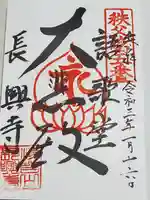 奉拝
秩父第五番
令和三年一月十六日
語歌堂
大悲殿
長興寺